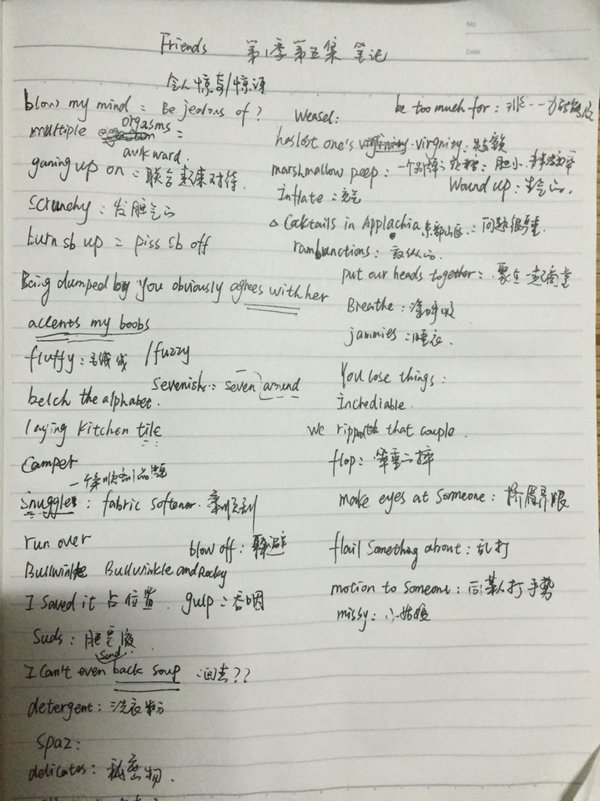 Friends 第1季第五集 笔记
令人惊奇/惊讶
blow my mind = Be jealous of?
multiple orgasms =
awkward
ganing up on : 联合起来对待
scrunchy : 发脾气的
burn sb up = piss sb off
Being dumped by you obviously agrees with her
accents my boobs
fluffy : 毛绒绒 / fuzzy
Sevenish : seven around
belch the alphabet.
laying kitchen tile
Camper
Snuggles : fabric softener. 柔顺剂
run over
blow off : 躲避
Bullwinkle Bullwinkle and Rocky
I saved it 占位置. gulp : 吞咽
Suds : 肥皂液
send
I can't even back soup 回去??
detergent : 洗衣粉
spaz :
delicates : 私密物.
Weasel :
be too much for :
has lost one's virgining :
marshmallow peep : 胆小.
Wound up : 生气的.
Inflate : 充气
△ Cocktails in Applachia : 问题很严重.
rambunctions : 放纵的
put our heads together : 聚在一起商量
Breathe : 深呼吸
jammies : 睡衣.
You lose things :
Incrediable.
We ripported that couple.
flop :
make eyes at someone : 挤眉弄眼
flail something about : 乱打
motion to someone : 向某人打手势
missy : 小姑娘